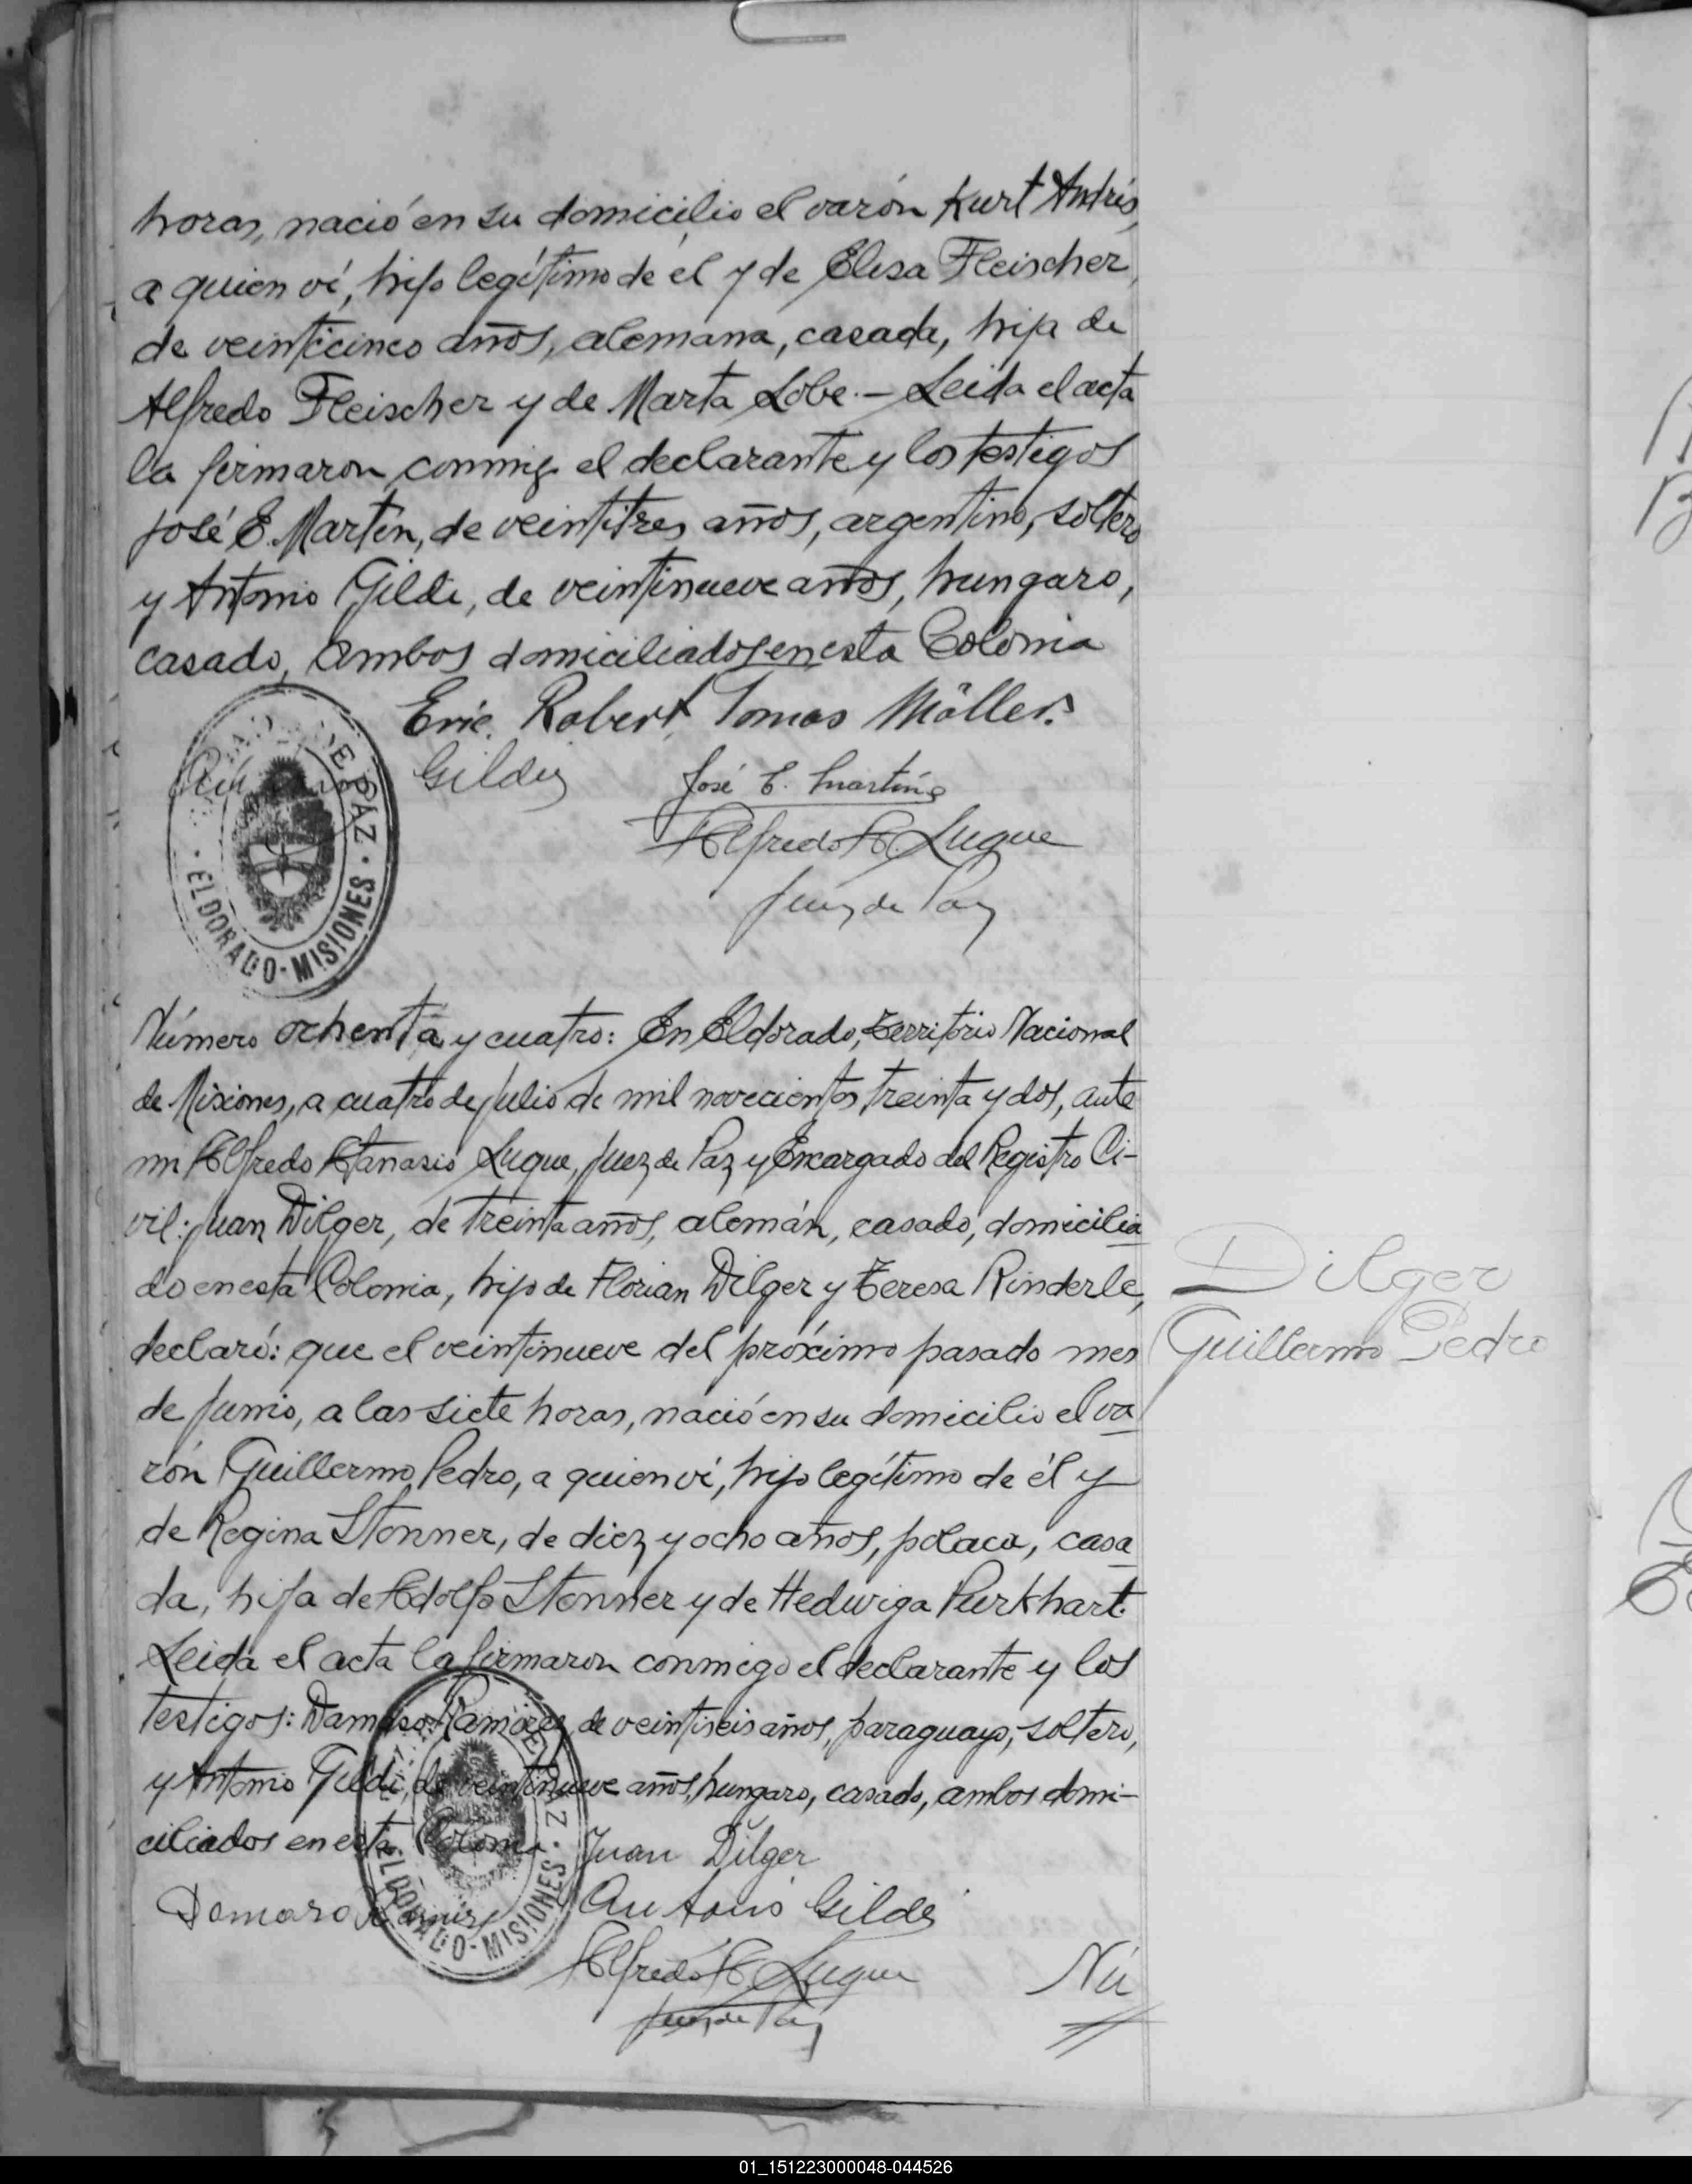 horas, nació en su domicilio el varón Kurt Andrés,
a quien ví, hijo legítimo de él y de Elisa Fleischer,
de veinticinco años, alemana, casada, hija de
Alfredo Fleischer y de Marta Löbe.- Leida el acta
la firmaron conmigo el declarante y los testigos
José E. Martin, de veintitres años, argentino, soltero
y Antonio Gildi, de veintinueve años, hungaro,
casado, ambos domiciliados en esta Colonia
Eric. Robert Tomas Möller.
Gildi José E. Martin
Alfredo A. Luque
Juez de Paz
DE PAZ · ELDORADO-MISIONES ·
Número ochenta y cuatro: En Eldorado, Territorio Nacional
de Misiones, a cuatro de Julio de mil novecientos treinta y dos, ante
mi Alfredo Atanasio Luque, Juez de Paz y Encargado del Registro Ci-
vil: Juan Dilger, de treinta años, alemán, casado, domicilia
do en esta Colonia, hijo de Florian Dilger y Teresa Rinderle,
declaró: que el veintinueve del próximo pasado mes
de Junio, a las siete horas, nació en su domicilio el va
rón Guillermo Pedro, a quien ví, hijo legítimo de él y
de Regina Stonner, de diez y ocho años, polaca, casa
da, hija de Adolfo Stonner y de Hedwiga Purkhart.
Leida el acta la firmaron conmigo el declarante y los
testigos: Damaso Ramirez, de veintiseis años, paraguayo, soltero,
y Antonio Gildi, de veintinueve años, hungaro, casado, ambos domi-
ciliados en esta Colonia
Juan Dilger
Damaso Ramirez Antonio Gildi
Alfredo A. Luque
Juez de Paz
Nú
ELDORADO-MISIONES ·
Dilger
Guillermo Pedro
01_151223000048-044526